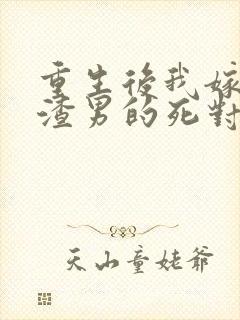 重生後我嫁
渣男的死對
天山童姥爺